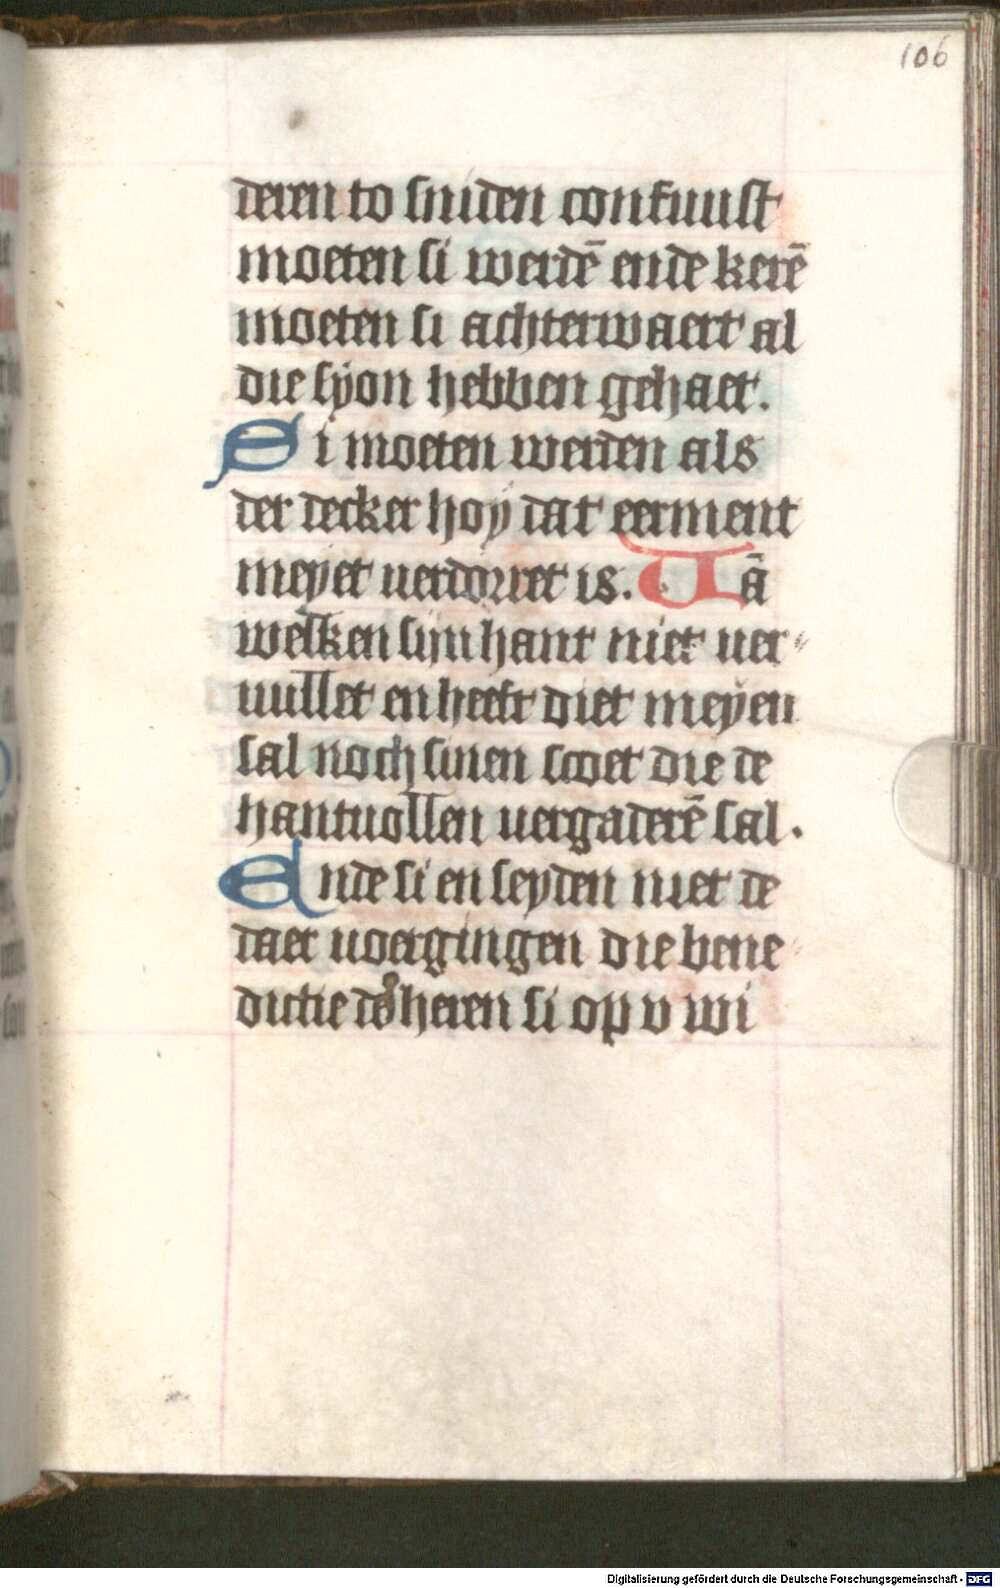 106
deren to sniden confuust
moeten si werdē ende kerē
moeten si achterwaert al
die syon hebben gehaet.
Si moeten werden als
der decker hoÿ dat eerment
meyet uerdorret is. Uā
welken sijn hant niet uer-
uullet en heeft diet meyen
sal noch sinen scoet die de
hantuollen uergaderē sal.
Ende si en seyden niet de
daer uoergingen die bene-
dictie des heren si op v wi
Digitalisierung gefördert durch die Deutsche Forschungsgemeinschaft - DFG